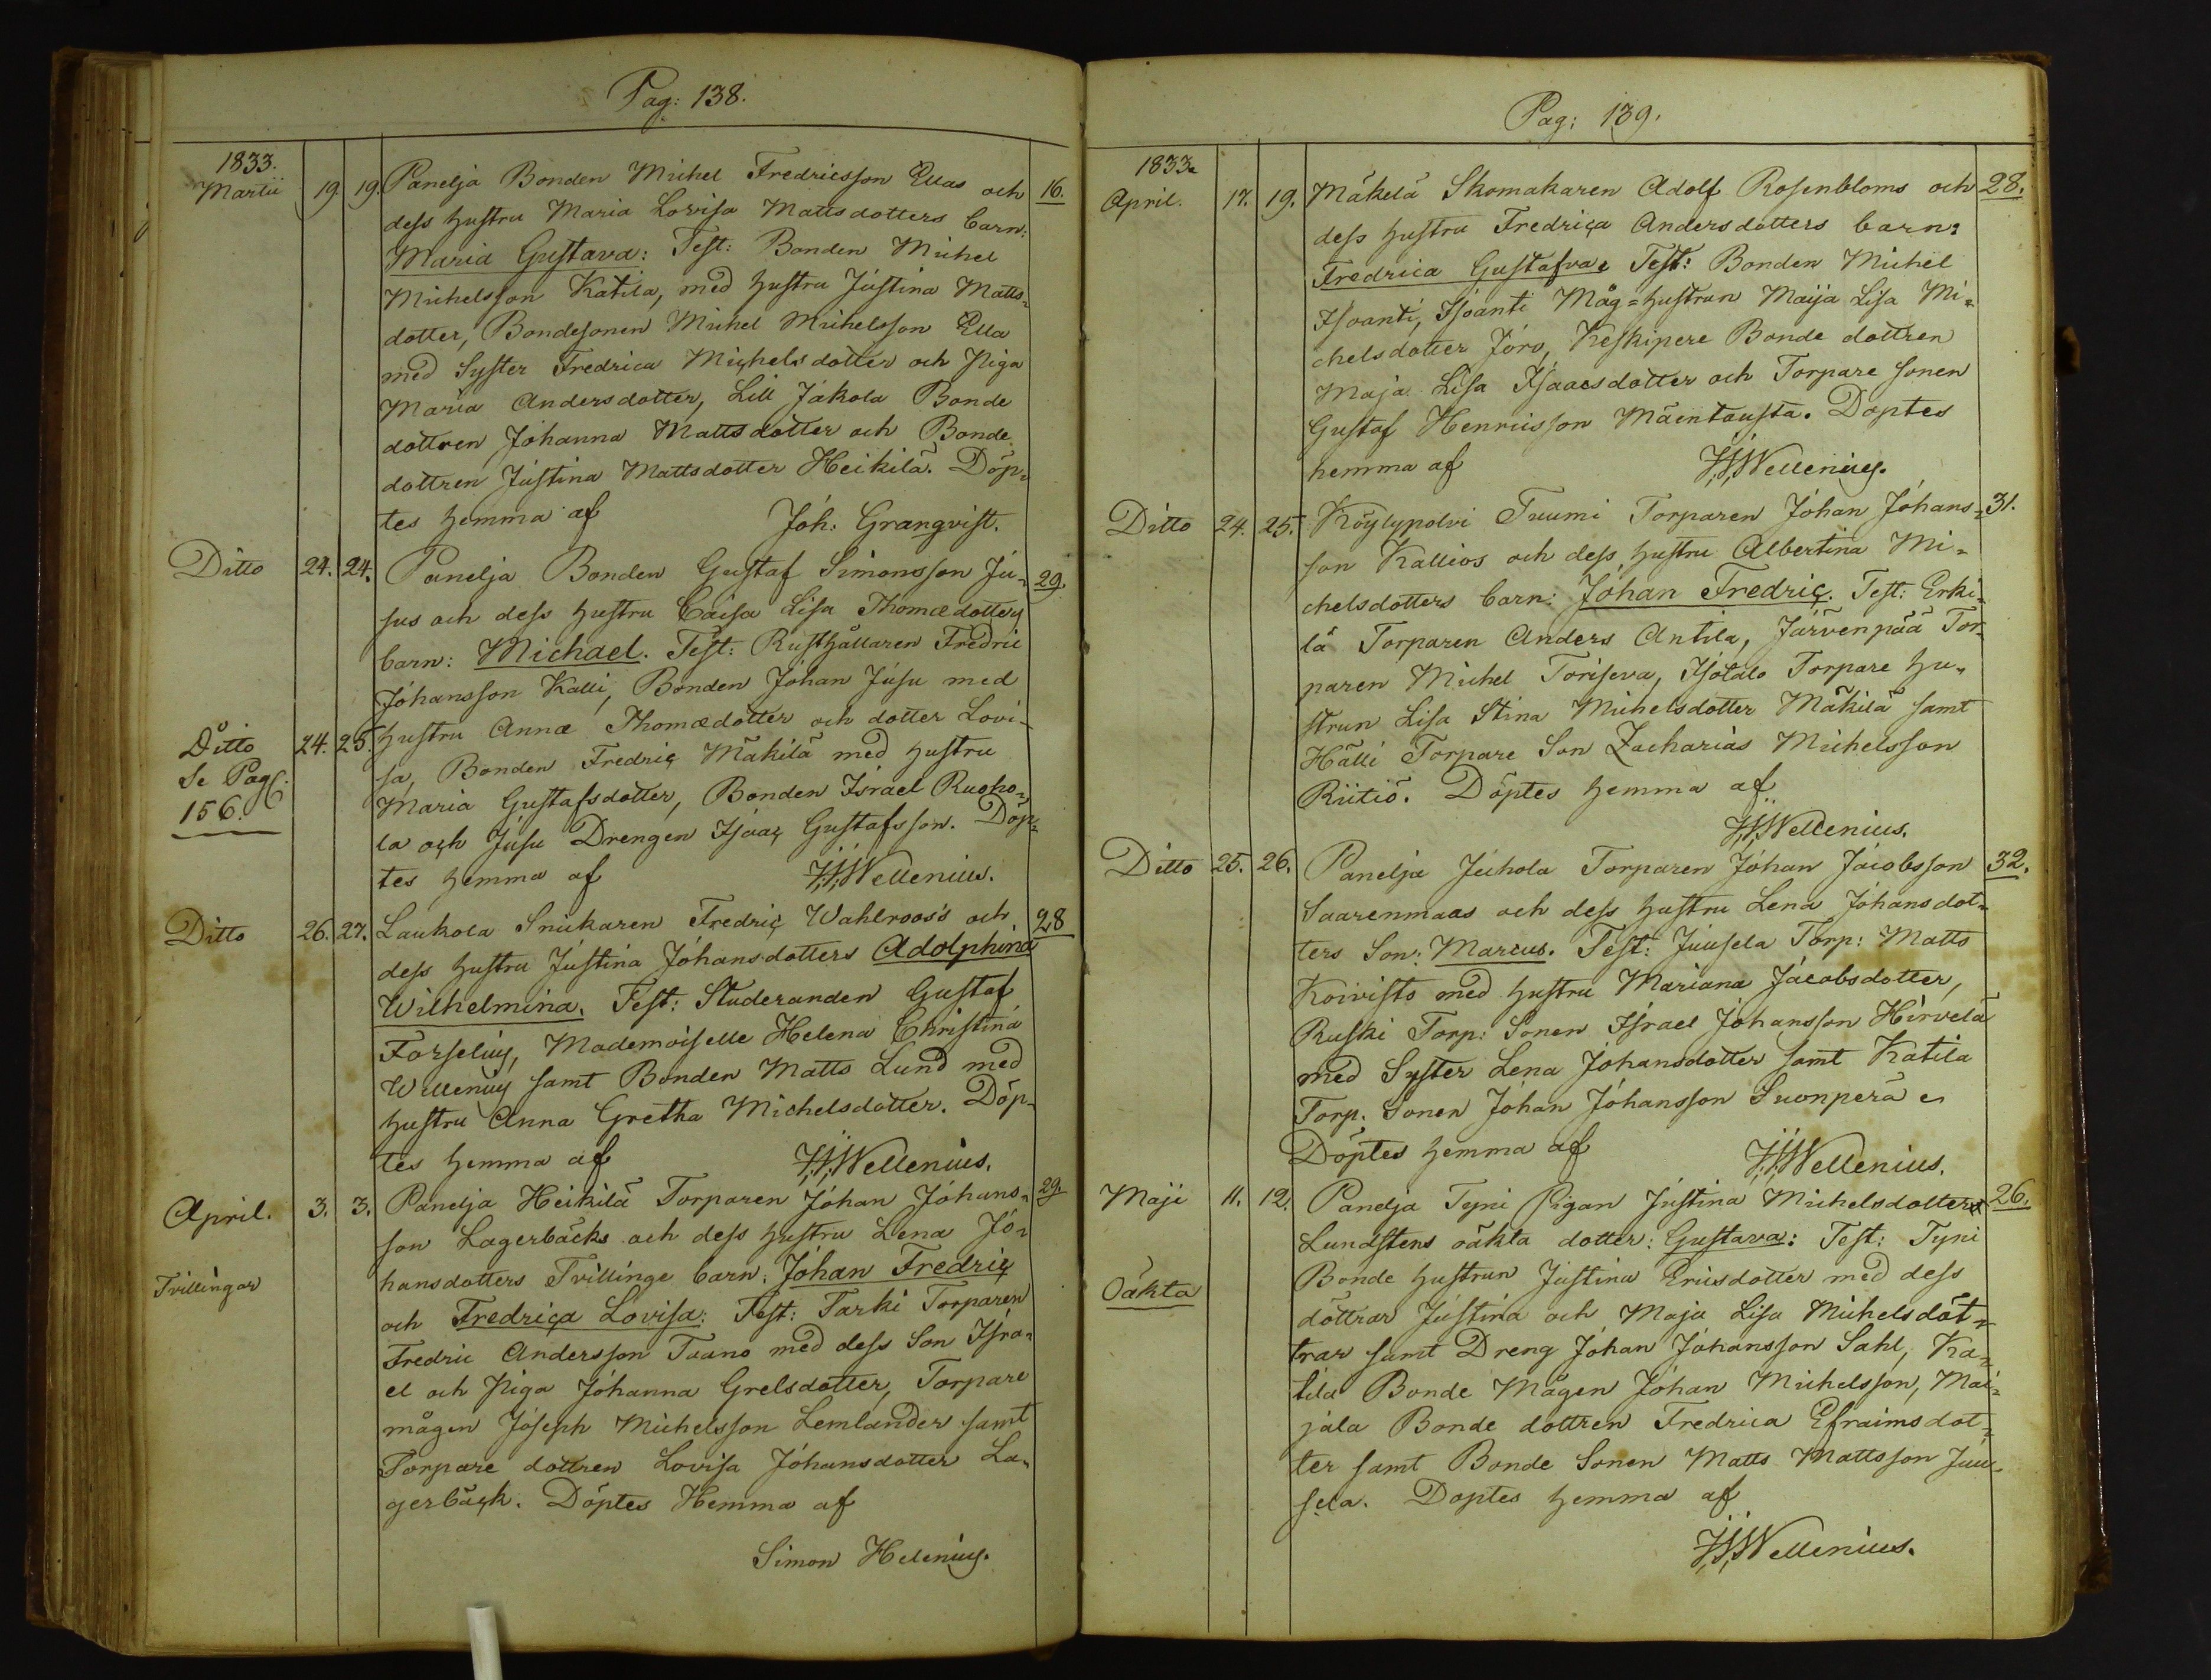 Pag: 138.
1833.
Martii 19. 19. Panelja Bonden Michel Fredricsson Ellas och 16.
dess hustru Maria Lovisa Mattsdotters barn:
Maria Gustava: Test: Bonden Michel
Michelsson Katila, med hustru Justina Matts-
dotter, Bondesonen Michel Michelsson Ella
med Syster Fredrica Michelsdotter och Piga
Maria Andersdotter, Lill Jakola Bonde
dottren Johanna Mattsdotter och Bonde
dottren Justina Mattsdotter Heikilä. Döp-
tes hemma af Joh: Granqvist.
Ditto 24. 24. Panelja Bonden Gustaf Simonsson Ju- 29.
sus och dess hustru Caisa Lisa Thomædotters
barn: Michael. Test: Rusthållaren Fredric
Johansson Kalli, Bonden Johan Jusu med
Ditto 24. 25. hustru Anna Thomædotter och dotter Lovi-
Se Pag:
156.
sa, Bonden Fredric Mäkilä med hustru
Maria Gustafsdotter, Bonden Israel Ruoho-
la och Jusu Drengen Isaac Gustafsson. Döp-
tes hemma af J.W.Wellenius.
Ditto 26. 27. Laukola Snickaren Fredric Wahlroos's och 28
dess hustru Justina Johansdotters Adolphina
Wilhelmina. Test: Studeranden Gustaf
Forselius, Mademoiselle Helena Christina
Wellenius samt Bonden Matts Lund med
hustru Anna Gretha Michelsdotter. Döp-
tes hemma af J.W.Wellenius.
April. 3. 3. Panelja Heikilä Torparen Johan Johans- 29.
son Lagerbäcks och dess hustru Lena Jo-
Tvillingar
hansdotters Tvillinge barn: Johan Fredric
och Fredrica Lovisa: Test: Tarki Torparen
Fredric Andersson Tuano med dess Son Isra-
el och Piga Johanna Grelsdotter, Torpare
mågen Joseph Michelsson Lemlander samt
Torpare dottren Lovisa Johansdotter La-
gerbäck. Döptes Hemma af
Simon Helenius.
Pag: 139.
1833.
April. 17. 19. Mäkelä Skomakaren Adolf Rosenbloms och 28.
dess hustru Fredrica Andersdotters barn:
Fredrica Gustafva. Test: Bonden Michel
Isoanti, Isoanti Måg=hustrun Maija Lisa Mi-
chelsdotter Joro, Keskipere Bonde dottren
Maja Lisa Isaacsdotter och Torpare sonen
Gustaf Henricsson Mäentausta. Döptes
hemma af J.W.Wellenius.
Ditto 24. 25. Köylypolvi Tuumi Torparen Johan Johans- 31.
son Kallios och dess hustru Albertina Mi-
chelsdotters barn: Johan Fredric. Test: Erki-
lä Torparen Anders Antila, Järvenpää Tor-
paren Michel Toriseva, Isotalo Torpare hu-
strun Lisa Stina Michelsdotter Mäkilä samt
Hälli Torpare Son Zacharias Michelsson
Riitiö. Döptes hemma af
J.W.Wellenius.
Ditto 25. 26. Panelja Juhola Torparen Johan Jacobsson 32.
Saarenmaas och dess hustru Lena Johansdot-
ters Son: Marcus. Test: Juusela Torp: Matts
Koivisto med hustru Mariana Jacobsdotter,
Ruski Torp: Sonen Israel Johansson Hirvelä
med Syster Lena Johansdotter samt Katila
Torp. Sonen Johan Johansson Suonperä.
Döptes hemma af J.W.Wellenius.
Maji 11. 12. Panelja Tyni Pigan Justina Michelsdotters 26.
Lundstens oäkta dotter: Gustava: Test: Tyni
Oäkta
Bonde hustrun Justina Ericsdotter med dess
döttrar Justina och Maja Lisa Michelsdöt-
trar samt Dreng Johan Johansson Sahl, Ka-
tila Bonde Mågen Johan Michelsson, Mai-
jala Bonde dottren Fredrica Efraimsdot-
ter samt Bonde Sonen Matts Mattsson Juu-
sela. Döptes hemma af
J.W.Wellenius.